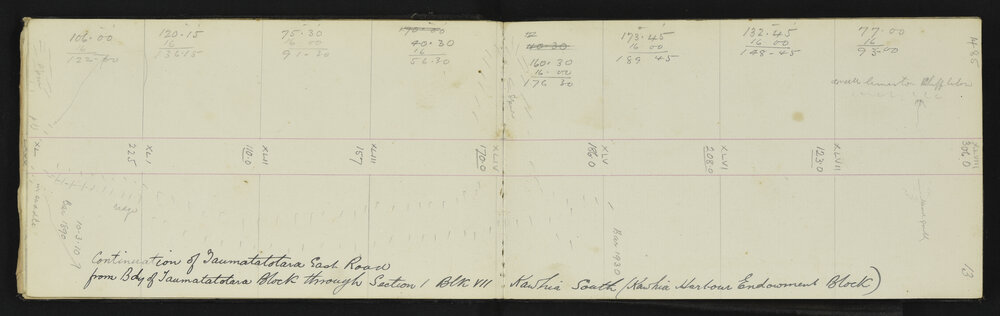 106.00
16
122.00
120.15
16
136.15
75.30
16.00
91.30
40.30
16.00
56.30
40.30
160.30
16.00
176.30
173.45
16 00
189 45
132.45
16.00
148.45
77.00
16
93.00
485
small limestone
XL
225
XLI
110.0
XLII
187
XLIII
170.0
XLIV
186.0
XLV
208.0
XLVI
123.0
XLVII
306.0
XLVIII
ridge
10.3.10
Bar 1890
Bar 1930
Continuation of Taumatatotara East Road
from Bdy of Taumatatotara Block through Section 1 Blk VII Kawhia South (Kawhia Harbour Endowment Block)